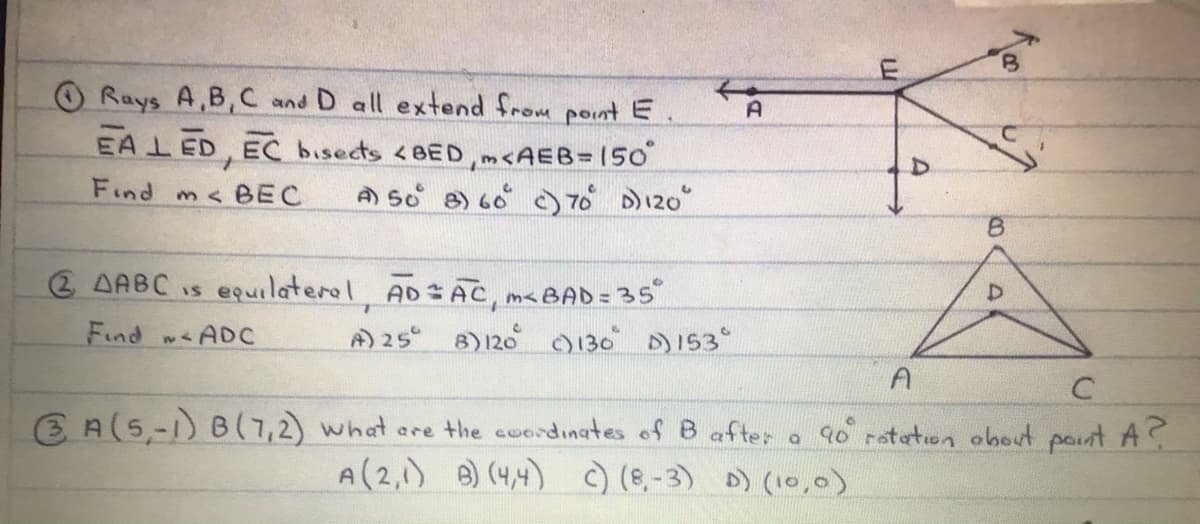 ① Rays A,B,C and D all extend from point E.
EA ⊥ ED, EC bisects <BED, m<AEB=150°
Find m< BEC A) 50° B) 60° C) 70° D) 120°
E
B
A
C
D
② ΔABC is equilateral, AD ≅ AC, m<BAD = 35°
Find m< ADC A) 25° B) 120° C) 130° D) 153°
B
D
A
C
③ A(5,-1) B(7,2) what are the coordinates of B after a 90° rotation about point A?
A(2,1) B) (4,4) C) (8,-3) D) (10,0)